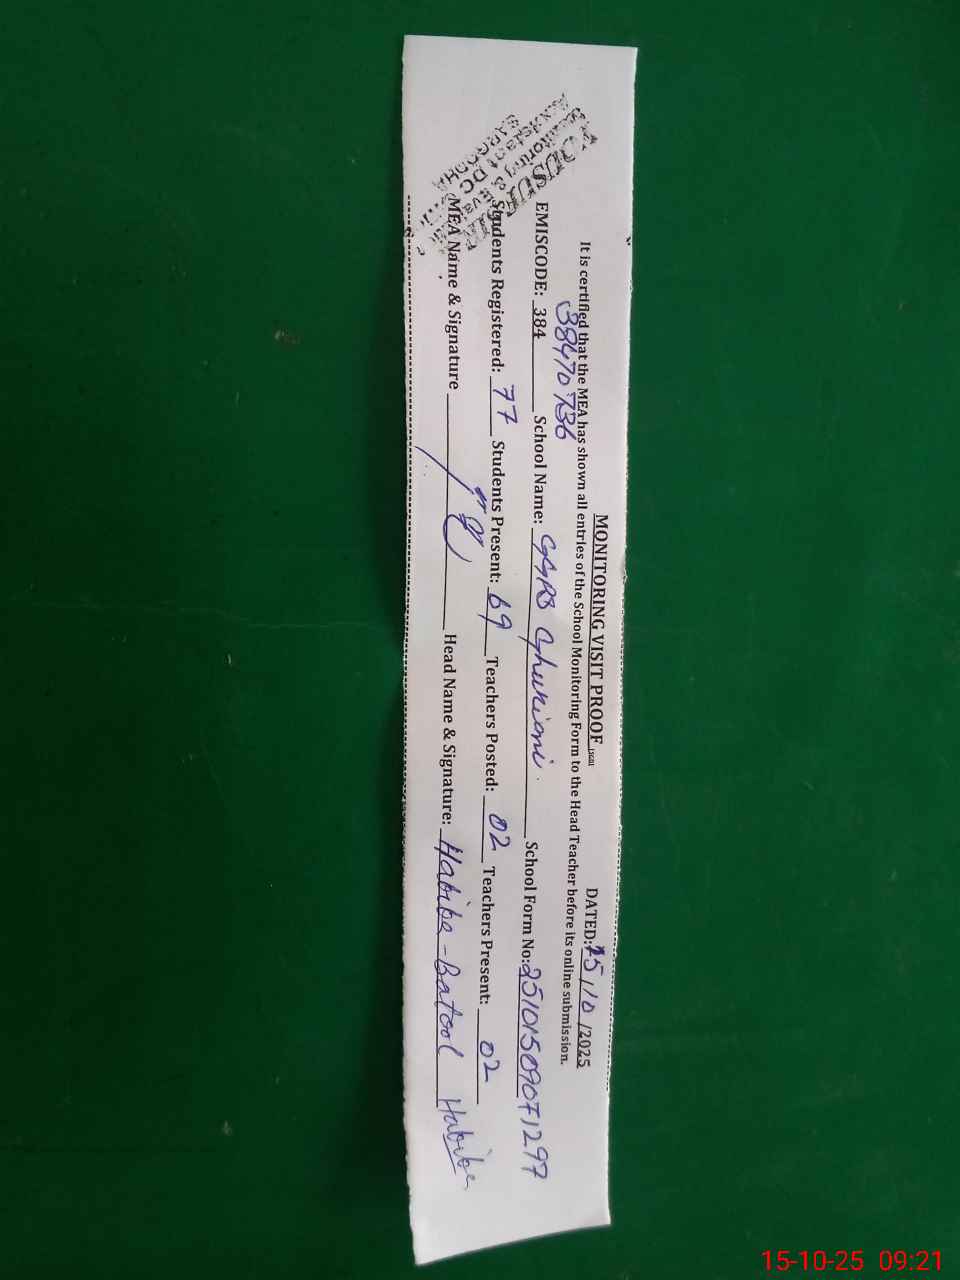 MONITORING VISIT PROOF
DATED: 15/10/2025
It is certified that the MEA has shown all entries of the School Monitoring Form to the Head Teacher before its online submission.
38470736
EMISCODE: 384 School Name: GGPS Ghukiani School Form No: 25101509071297
Students Registered: 77 Students Present: 69 Teachers Posted: 02 Teachers Present: 02
MEA Name & Signature Head Name & Signature: Habiba-Batool Habiba
Monitoring & Evaluation
Assistant DC
SARGODHA
15-10-25 09:21